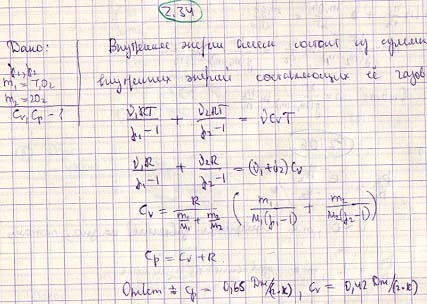 2.34
Дано:
γ₁, γ₂
m₁ = 7,0 г
m₂ = 20 г
Cv, Cp - ?
Внутренняя энергия смеси состоит из суммы
внутренних энергий составляющих её газов
ν₁RT/(γ₁-1) + ν₂RT/(γ₂-1) = νCvT
ν₁R/(γ₁-1) + ν₂R/(γ₂-1) = (ν₁+ν₂)Cv
Cv = R/(m₁/M₁ + m₂/M₂) (m₁/(M₁(γ₁-1)) + m₂/(M₂(γ₂-1)))
Cp = Cv + R
Ответ: Cp = 0,65 Дж/(г.К), Cv = 0,42 Дж/(г.К)